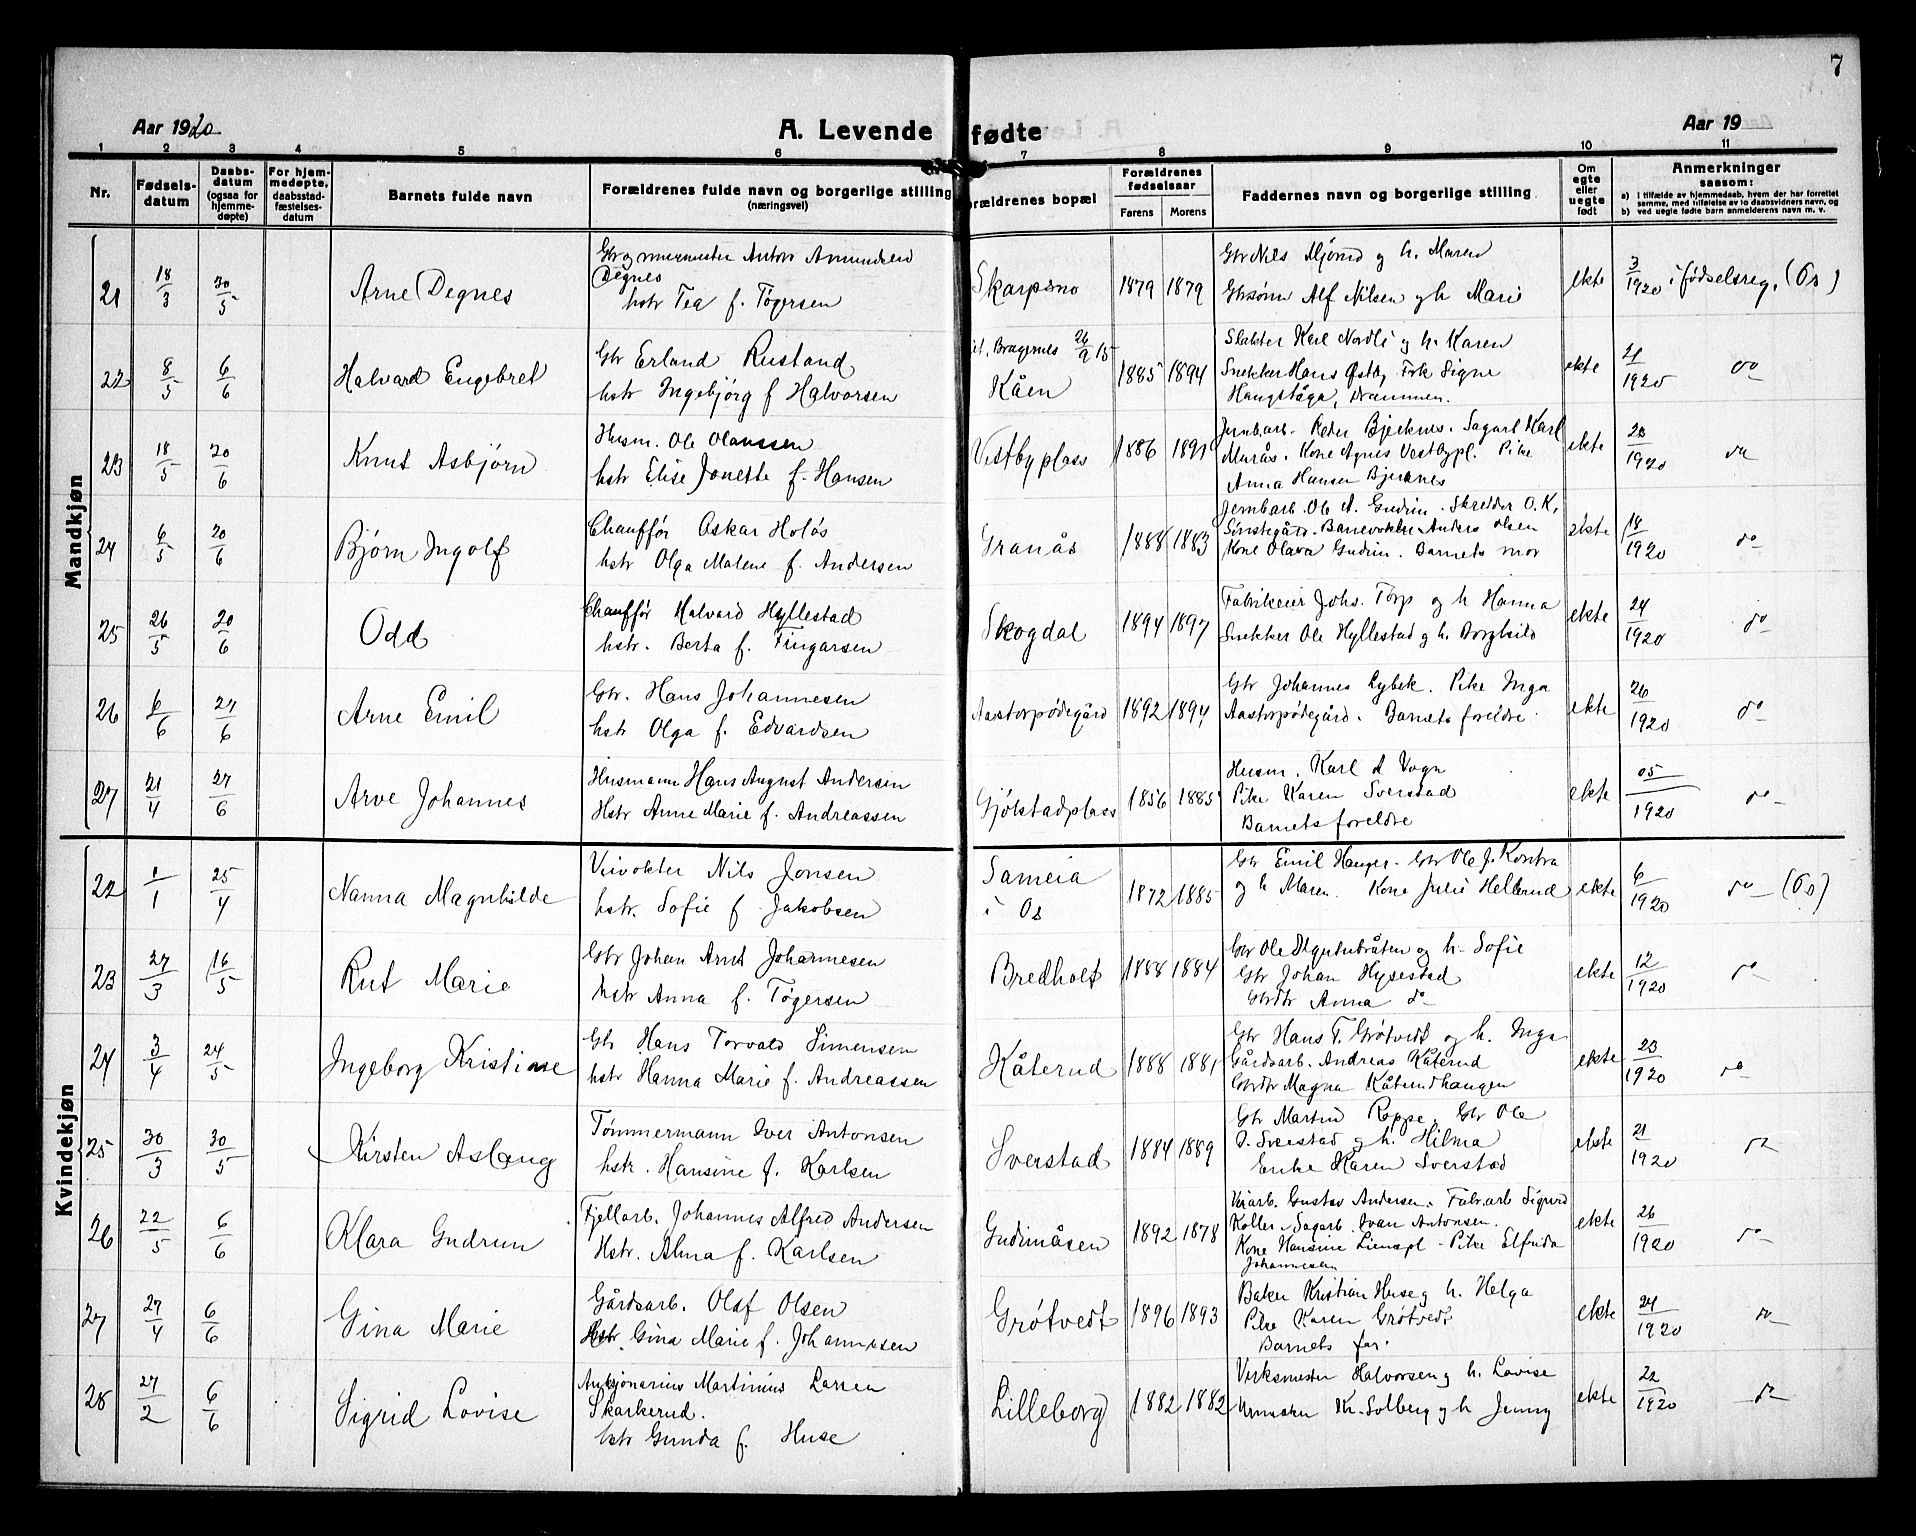 7
Aar 1920
A. Levende fødte
Aar 19
1 2 3 4 5 6 7 8 9 10 11
Nr.
Fødsels-
datum
Daabs-
datum
(ogsaa for
hjemme-
døpte)
For hjem-
medøpte,
daabsstad-
fæstelses-
datum
Barnets fulde navn
Forældrenes fulde navn og borgerlige stilling
(næringsvei)
orældrenes bopæl
Forældrenes
fødselsaar
Farens Morens
Faddernes navn og borgerlige stilling
Om
egte
eller
uegte
født
Anmerkninger
saasom:
a) i tilfælde av hjemmedaab, hvem der har forrettet
samme, med tilføielse av to daabsvidners navn, og
b) ved uegte fødte barn anmelderens navn m. v.
Mandkjøn
21 18/3 30/5 Arne Degnes
Gbr og murmester Anton Amundsen
Degnes
hstr Tea f. Tøgersen
Skarpsno 1879 1879
Gbr Nils Mjørud og h. Maren
Gbrsønn Alf Nilsen og h Marie
ekte 3/1920 i fødselsreg. (Os)
22 8/5 6/6 Halvard Engebret
Gbr Erland Rustand
hstr Ingebjørg f Halvorsen
Bragernes 26/9 15
Kåen 1885 1894
Slakter Karl Nordli og h. Karen
Snekker Hans Østby, Frk Signe
Haugståga, Drammen.
ekte 21/1920 do
23 18/5 20/6 Knut Asbjørn
Husm. Ole Olaussen
hstr Elise Jonette f. Hansen
Vestbyplass 1886 1891
Jernbarb. Peder Bjerknes. Sagarb Karl
Murås. Kone Agnes Vestbypl. Pike
Anna Hansen Bjerknes
ekte 20/1920 do
24 6/5 20/6 Bjørn Ingolf
Chauffør Oskar Holøs
hstr Olga Malene f. Andersen
Granås 1888 1883
Jernbarb. Ole A. Gudim. Skredder O. K.
Sønstegård. Barnevokter Anders Olsen
Kone Olava Gudim. Barnets mor
ekte 18/1920 do
25 26/5 20/6 Odd
Chauffør Halvard Hyllestad
hstr. Berta f. Fingarsen
Skogdal 1894 1897
Fabrikeier Johs. Torp og h Hanna
Snekker Ole Hyllestad og h. Borghild
ekte 24/1920 do
26 6/6 27/6 Arne Emil
Gbr. Hans Johannesen
hstr Olga f. Edvardsen
Aastorpødegård 1892 1894
Gbr Johannes Lybek. Pike Inga
Aastorpødegård. Barnets foreldre
ekte 26/1920 do
27 21/4 27/6 Arve Johannes
Husmann Hans August Andersen
Hstr Anne Marie f. Andreassen
Gjølstadplass 1856 1885
Husm. Karl A Vogn
Pike Karen Sverstad
Barnets foreldre
ekte 05/1920 do
Kvindekjøn
22 1/1 25/4 Nanna Magnhilde
Veivokter Nils Jonsen
hstr. Sofie f Jakobsen
Sameia
i Os 1872 1885
Gbr Emil Hauger. Gbr Ole J. Kontra
og h Maren. Kone Julie Hellerud
ekte 6/1920 do (Os)
23 27/3 16/5 Rut Marie
Gbr Johan Arnt Johannesen
hstr Anna f. Tøgersen
Bredholt 1888 1884
Gbr Ole og h. Sofie
Gbr Johan Hysestad
Gbrdtr Anna do
ekte 12/1920 do
24 3/4 24/5 Ingeborg Kristiane
Gbr Hans Torvald Simensen
hstr Hanna Marie f. Andreassen
Kåterud 1888 1881
Gbr Hans T. Grøtvedt og h. Inga
Gårdsarb. Andreas Kåterud
Gbrdtr Magna Kåterudhaugen
ekte 23/1920 do
25 30/3 30/5 Kirsten Aslaug
Tømmermann Iver Antonsen
hstr. Hansine f. Karlsen
Sverstad 1884 1889
Gbr Martin Roppe. Gbr Ole
O. Sverstad og h. Hilma
Enke Karen Sverstad
ekte 21/1920 do
26 22/5 6/6 Klara Gudrun
Fjellarb. Johannes Alfred Andersen
Hstr. Alma f. Karlsen
Gudimåsen 1892 1878
Veiarb. Gustav Andersen. Fabr.arb Sigurd
Koller. Sagarb. Ivar Antonsen.
Kone Hansine Lienspl. Pike Elfrida
Johannesen
ekte 26/1920 do
27 27/4 6/6 Gina Marie
Gårdsarb. Olaf Olsen
Hstr. Gina Marie f. Johannesen
Grøtvedt 1896 1893
Baker Kristian Huse og h. Helga
Pike Karen Grøtvedt
Barnets far.
ekte 24/1920 do
28 27/2 6/6 Sigrid Lovise
Auksjonarius Martinius Larsen
Skarkerud.
hstr Gunda f. Huse
Lilleborg 1882 1882
Verksmester Halvorsen og h. Lovise
Kr. Solberg og h Jenny
ekte 22/1920 do